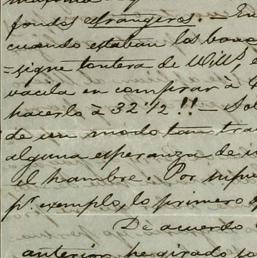 fondos estrangeros. — En
cuando estaban los bono
=signe tontera de Will.s e
vacila en comprar à
hacerlo à 32 1/2 !! — Sol
de un modo tam tra
alguna esperanza de
el hambre. Por supu
pr. exemplo, lo primero q
De acuerdo
anterior he girado